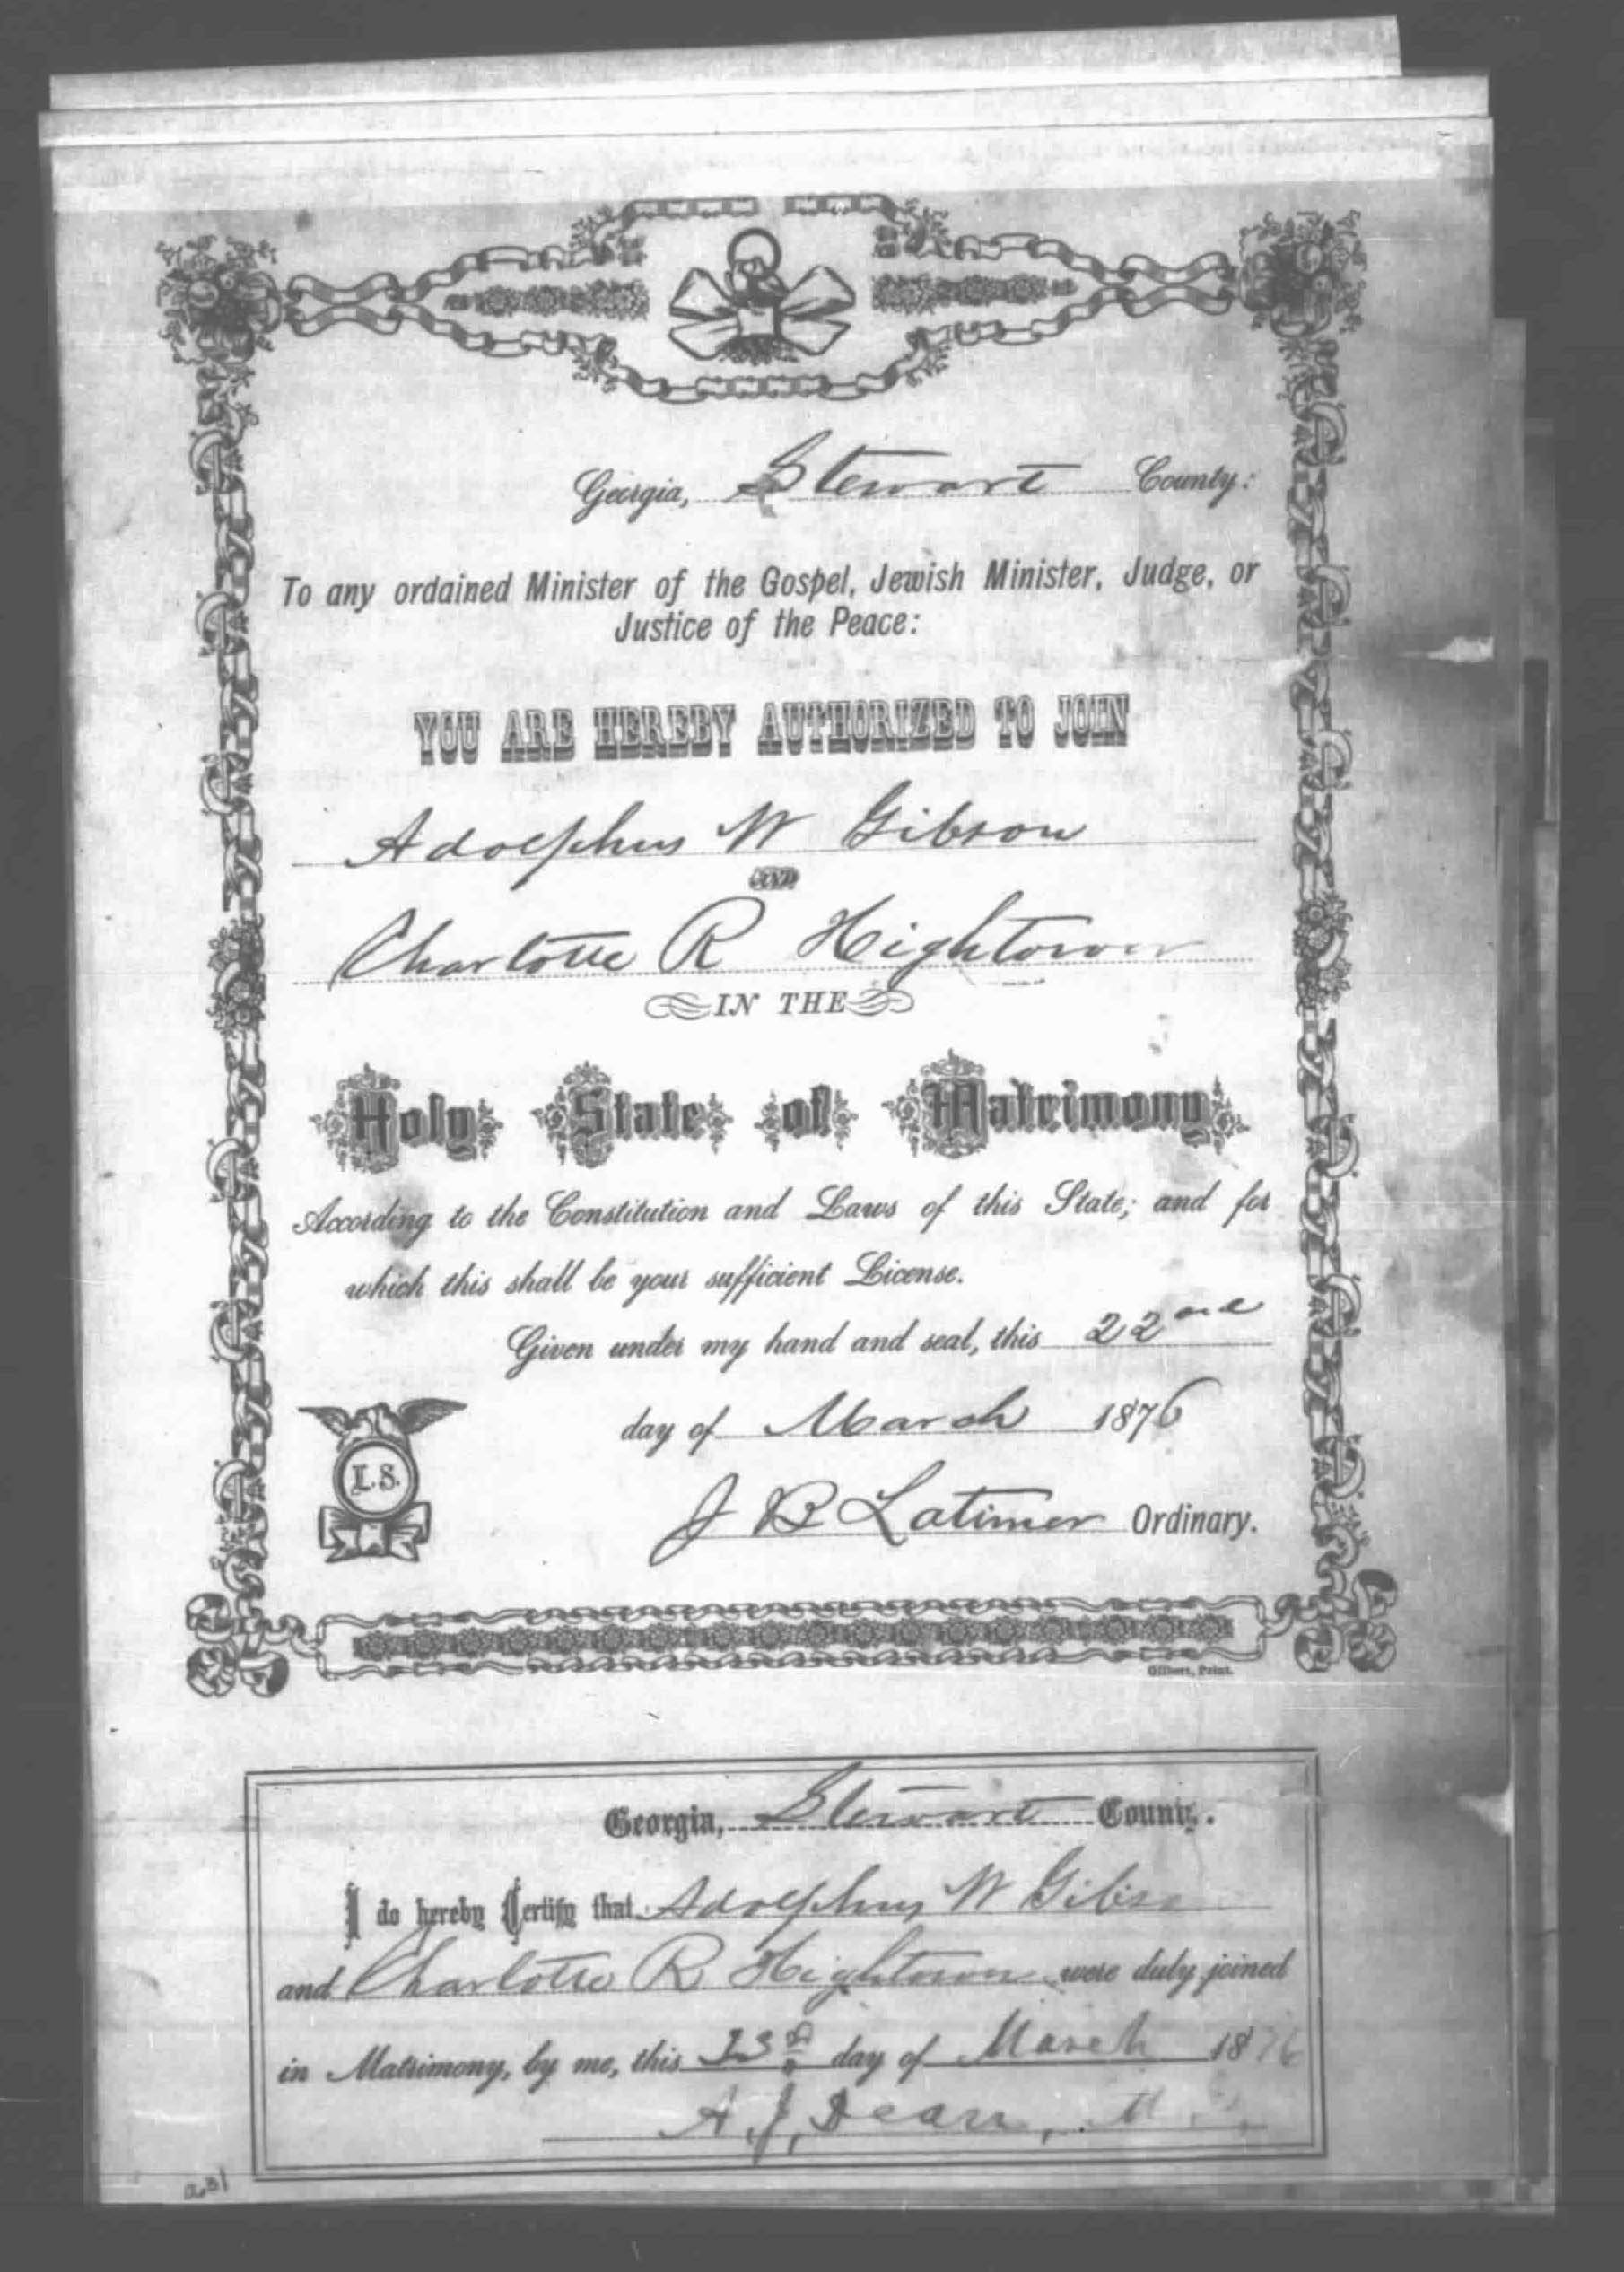 Georgia, Stewart County:
To any ordained Minister of the Gospel, Jewish Minister, Judge, or
Justice of the Peace:
YOU ARE HEREBY AUTHORIZED TO JOIN
Adolphus W Gibson
AND
Charlotte R Hightower
IN THE
Holy State of Matrimony
According to the Constitution and Laws of this State; and for
which this shall be your sufficient License.
Given under my hand and seal, this 22nd
day of March 1876
L.S.
J B Latimer Ordinary.
Gilbert, Print.
Georgia, Stewart County.
I do hereby Certify that Adolphus W Gibson
and Charlotte R Hightower were duly joined
in Matrimony, by me, this 23rd day of March 1876
A. J. Dean, M.